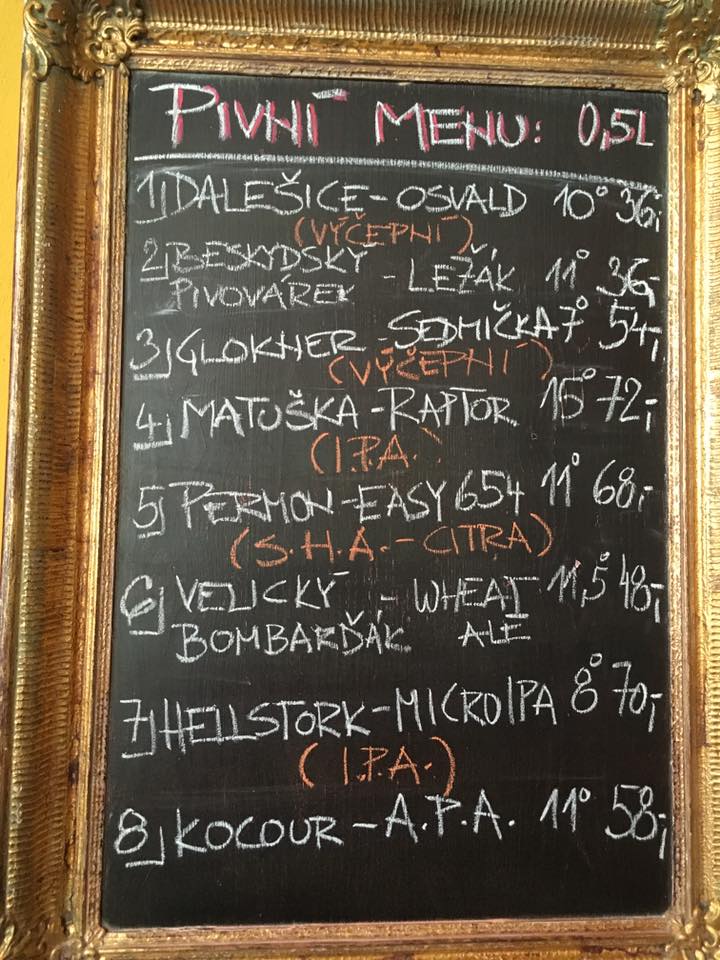 PIVNÍ MENU: 0,5L
1) DALEŠICE - OSVALD 10° 36,-
(VÝČEPNÍ)
2) BESKYDSKÝ PIVOVÁREK - LEŽÁK 11° 36,-
3) GLOKNER - SEDMIČKA 7° 54,-
(VÝČEPNÍ)
4) MATUŠKA - RAPTOR 15° 72,-
(I.P.A.)
5) PERMON - EASY 654 11° 68,-
(S.H.A. - CITRA)
6) VELICKÝ - WHEAT 11,5° 48,-
BOMBARĎÁK ALE
7) HELLSTORK - MICROIPA 8° 70,-
(I.P.A.)
8) KOCOUR - A.P.A. 11° 58,-